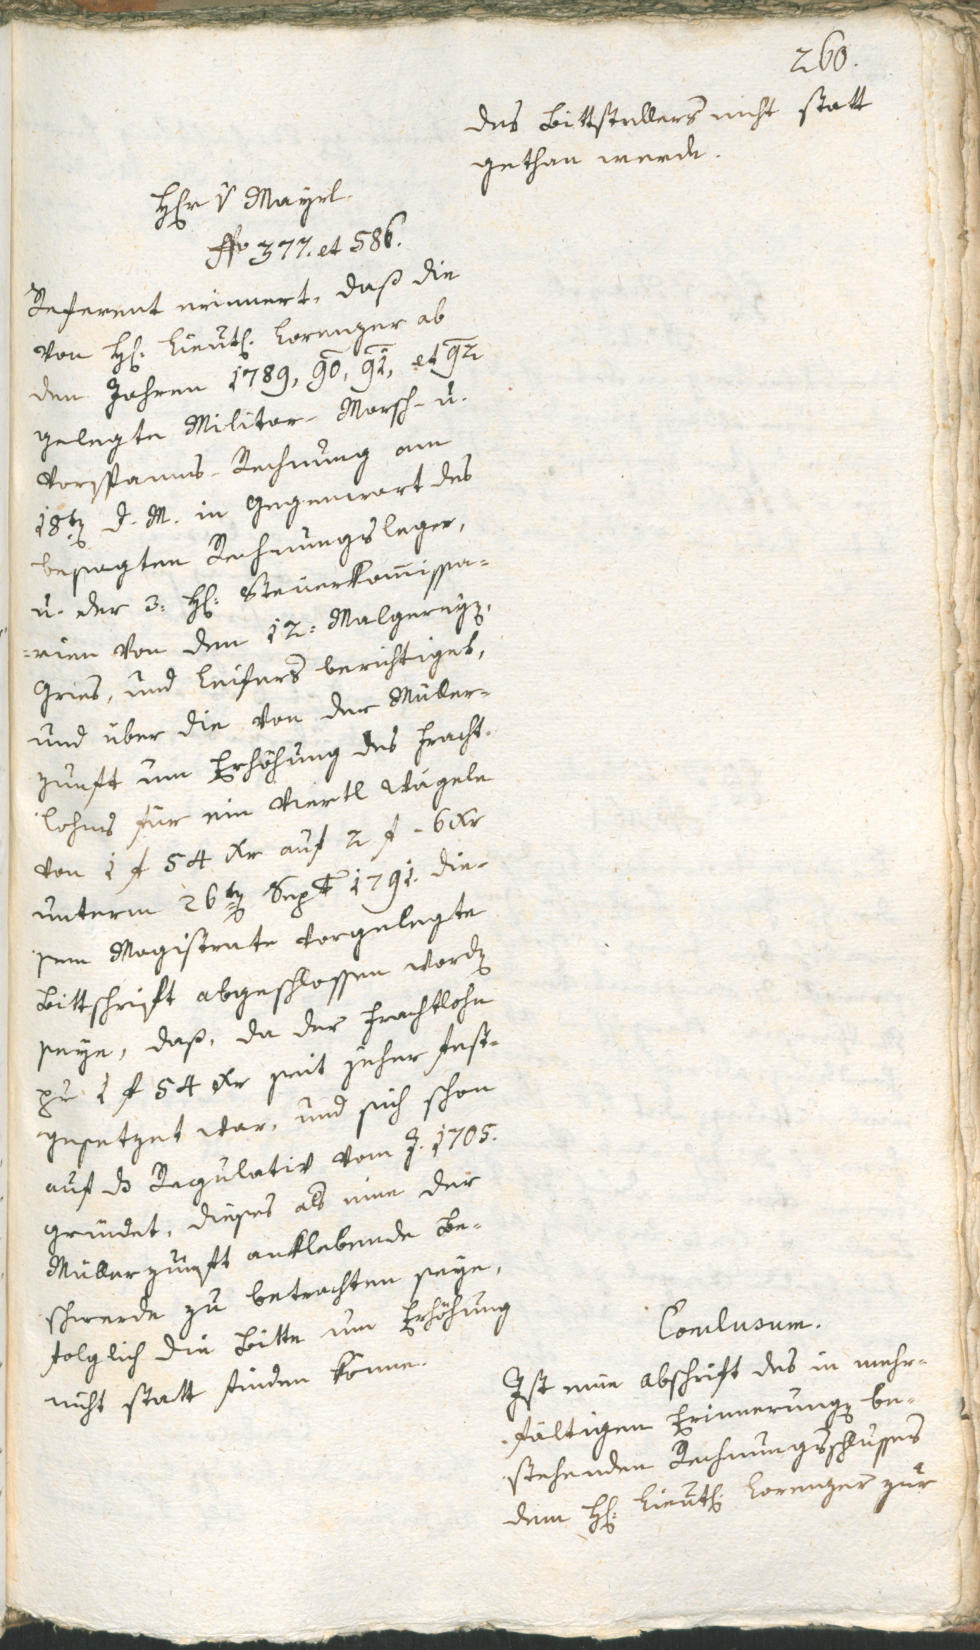 260.
des Bittstellers nicht statt
gethan werde.
Hr v Mayrl.
ffo 377. et 586.
Referent erinnert, daß die
von H: Lieut: Lorenzer ab
den Jahren 1789, 90, 91, et 92
gelegte Militar- Marsch- u.
Vorspanns-Rechnung am
18ten d. M. in Gegenwart des
besagten Rechnungsleger,
u. der 3: H: Steuerkommissa-
-rien von dem 12: Malgereyen,
Gries, und Leifers berichtiget,
und über die von der Müller-
zunft um Erhöhung des Fracht-
lohns für ein Viertl Wägele
von 1 f 54 Xr auf 2 f - 6 Xr
unterm 26ten Sept 1791. die-
sem Magistrate vorgelegte
Bittschrift abgeschlossen worden
seye, daß, da der Frachtlohn
pr 1 f 54 Xr seit jeher fest-
gesetzet war, und sich schon
auf das Regulativ vom J. 1705.
gründet, dieses als eine der
Müllerzunft anklebende Be-
schwerde zu betrachten seye,
folglich die Bitte um Erhöhung
nicht statt finden könne.
Conclusum.
Ist eine Abschrift des in mehr-
fältigen Erinnerungen be-
stehenden Rechnungsschlusses
dem H: Lieut: Lorenzer zur